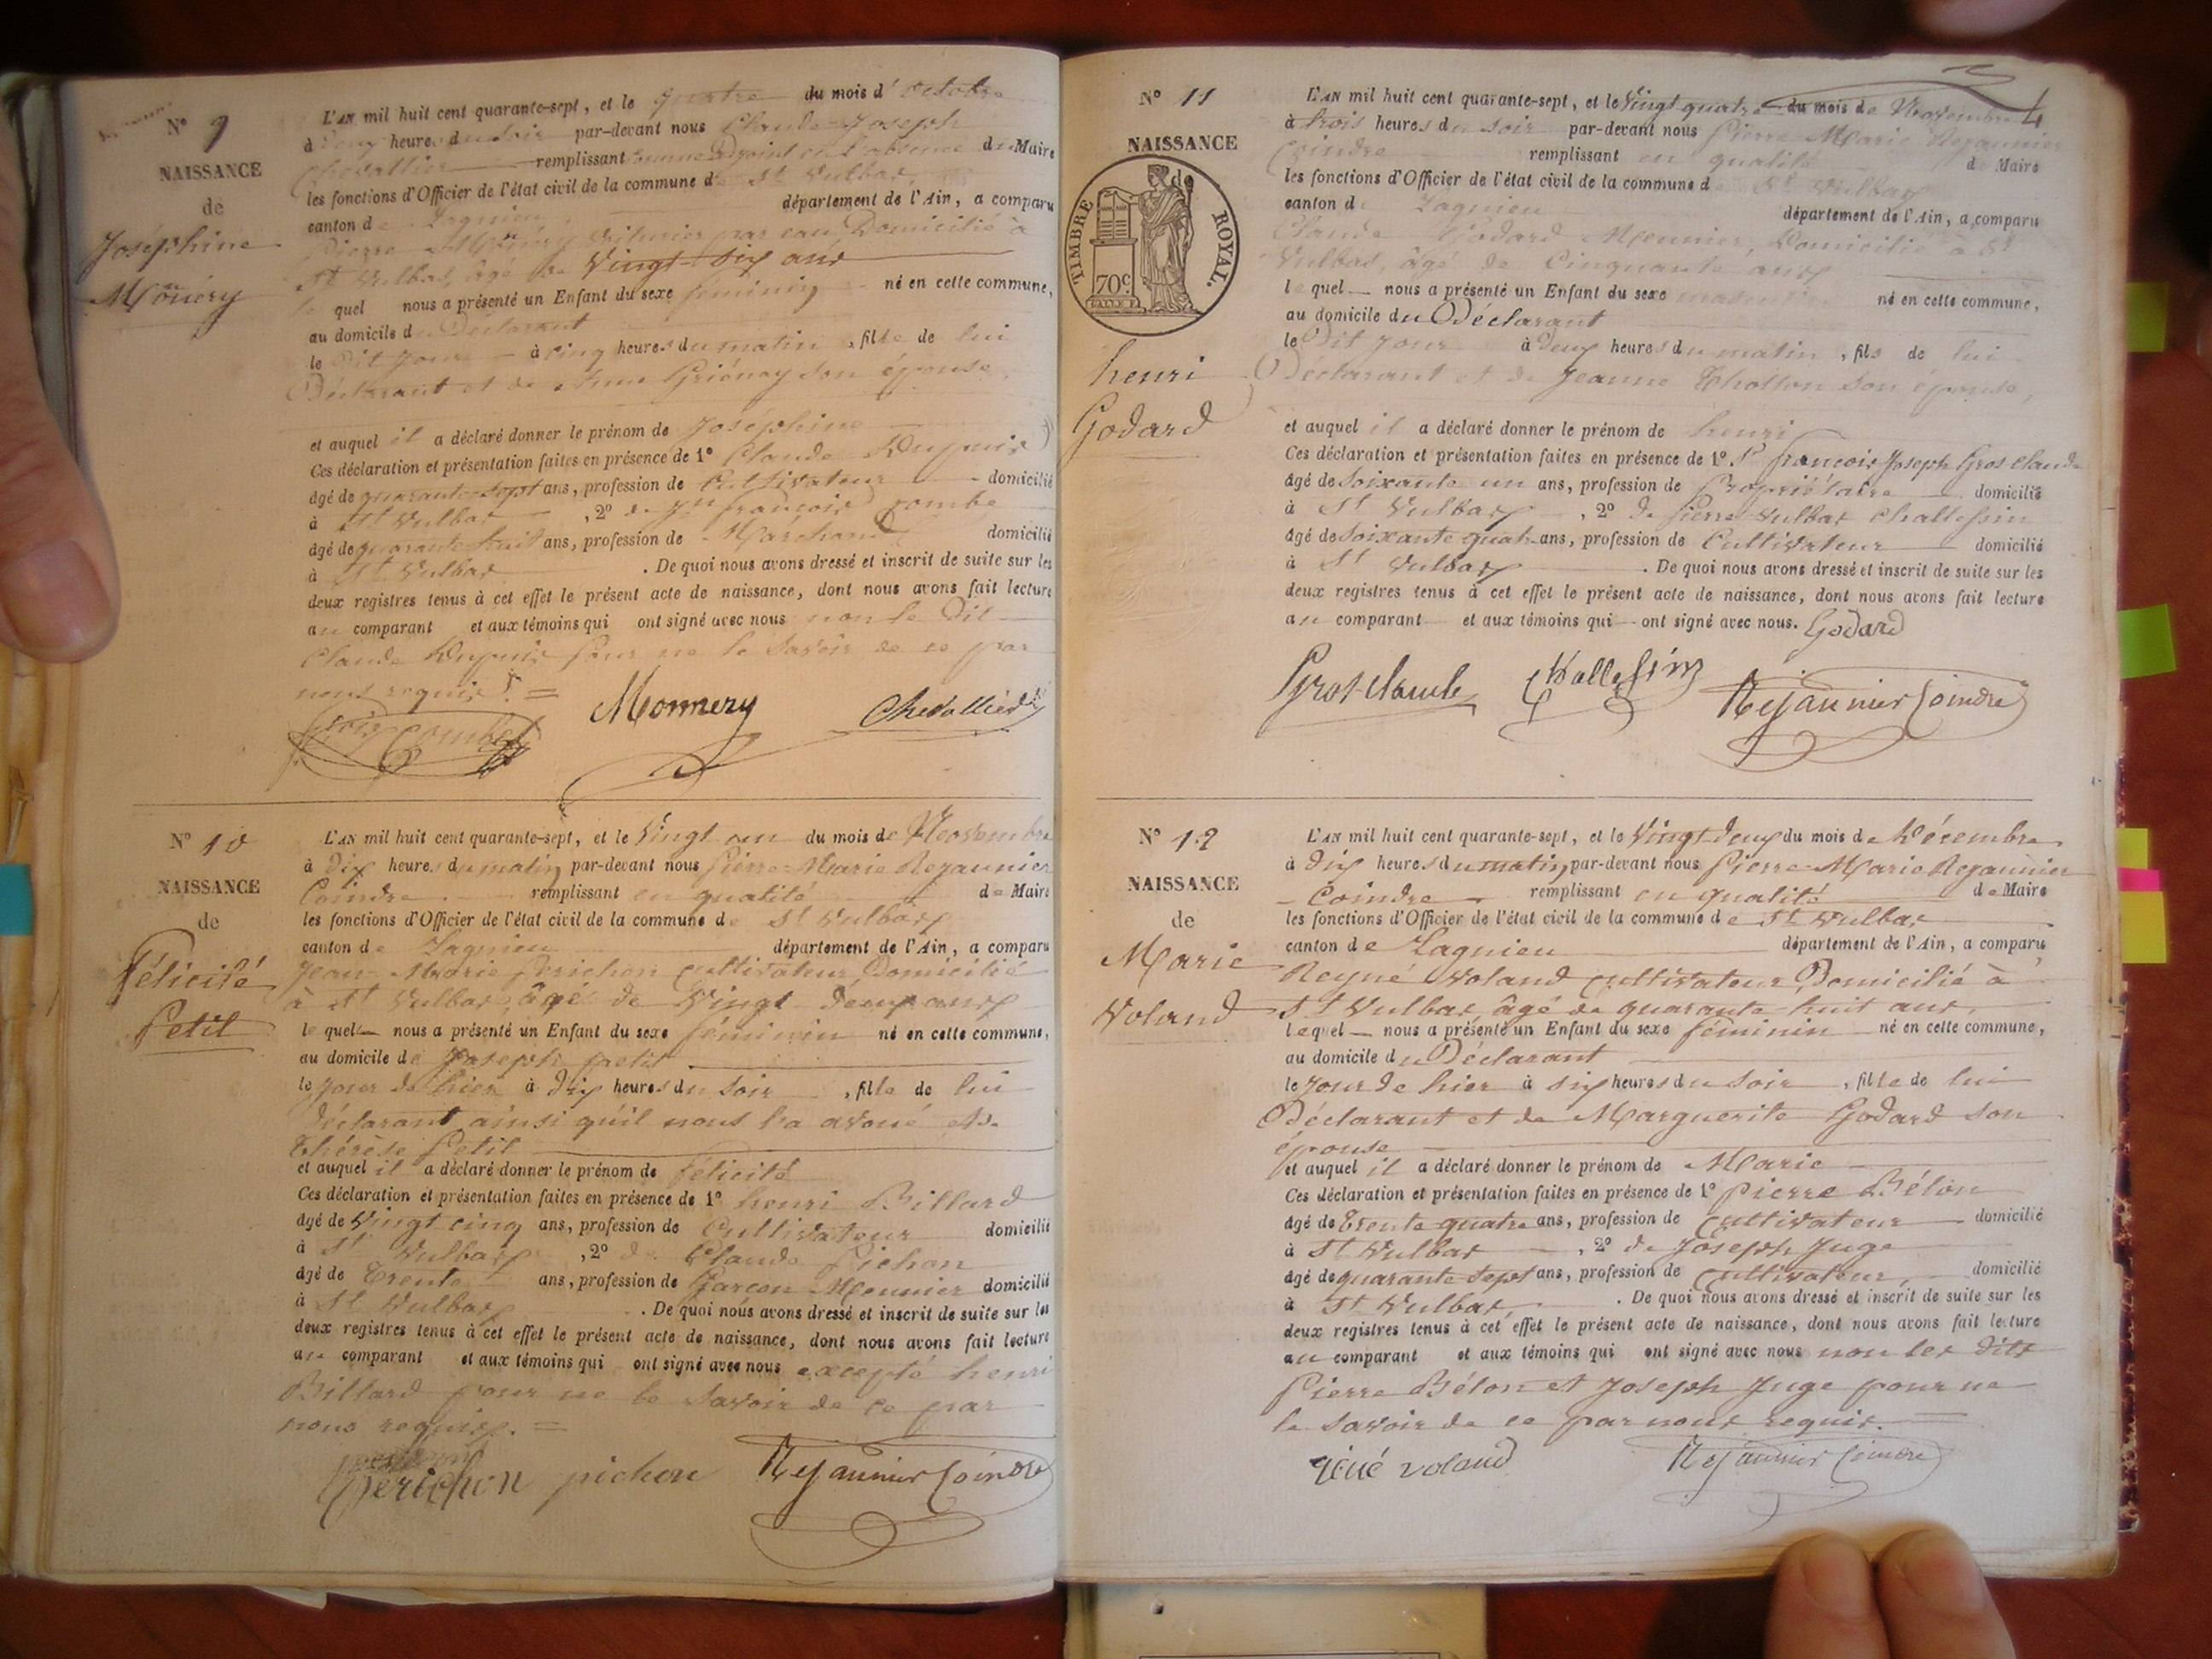 N° 9
NAISSANCE
de
Joséphine
Mönery
L'AN mil huit cent quarante-sept, et le quatre du mois d'octobre
à deux heures du soir par-devant nous Claude-Joseph
Chevallier remplissant comme Adjoint en l'absence du Maire
les fonctions d'Officier de l'état civil de la commune de St Vulbas
canton de Lagnieu département de l'Ain, a comparu
Pierre par eau Domicilié à
St Vulbas, âgé de Vingt-six ans
le quel nous a présenté un Enfant du sexe féminin né en cette commune,
au domicile du Déclarant
le Dit Jour à cinq heures du matin, fille de lui
Déclarant et de son épouse
et auquel il a déclaré donner le prénom de Joséphine
Ces déclaration et présentation faites en présence de 1° Claude Dupuis
âgé de quarante-sept ans, profession de Cultivateur domicilié
à St Vulbas, 2° de Jn françois Combe
âgé de quarante huit ans, profession de Marchand domicilié
à St Vulbas. De quoi nous avons dressé et inscrit de suite sur les
deux registres tenus à cet effet le présent acte de naissance, dont nous avons fait lecture
au comparant et aux témoins qui ont signé avec nous non le Dit
Claude Dupuis pour ne le savoir de ce par
nous requis. =
Combe Monnery Chevallier
N° 10
NAISSANCE
de
Félicité
Petit
L'AN mil huit cent quarante-sept, et le Vingt un du mois de Novembre
à dix heures du matin par-devant nous Pierre-Marie Rejaunier
Coindre remplissant en qualité de Maire
les fonctions d'Officier de l'état civil de la commune de St Vulbas
canton de Lagnieu département de l'Ain, a comparu
Jean-Marie Perichon cultivateur Domicilié
à St Vulbas, âgé de Vingt Deux ans
le quel nous a présenté un Enfant du sexe féminin né en cette commune,
au domicile de Joseph petit
le jour de hier à dix heures du soir, fille de lui
Déclarant ainsi qu'il nous l'a avoué et de
Thérèse Petit
et auquel il a déclaré donner le prénom de félicité
Ces déclaration et présentation faites en présence de 1° henri Billard
âgé de Vingt cinq ans, profession de Cultivateur domicilié
à St Vulbas, 2° de Claude Pichon
âgé de Trente ans, profession de Garçon Meunier domicilié
à St Vulbas. De quoi nous avons dressé et inscrit de suite sur les
deux registres tenus à cet effet le présent acte de naissance, dont nous avons fait lecture
au comparant et aux témoins qui ont signé avec nous excepté henri
Billard pour ne le savoir de ce par
nous requis. =
perichon pichon Rejaunier Coindre
4
N° 11
NAISSANCE
de
TIMBRE ROYAL.
70c.
henri
Godard
L'AN mil huit cent quarante-sept, et le Vingt quatre du mois de Novembre
à trois heures du soir par-devant nous Pierre Marie Rejaunier
Coindre remplissant en qualité de Maire
les fonctions d'Officier de l'état civil de la commune de St Vulbas
canton de Lagnieu département de l'Ain, a comparu
Claude Godard Meunier, Domicilié à St
Vulbas, âgé de Cinquante ans
le quel nous a présenté un Enfant du sexe masculin né en cette commune,
au domicile du Déclarant
le Dit Jour à deux heures du matin, fils de lui
Déclarant et de Jeanne Thollon son épouse,
et auquel il a déclaré donner le prénom de henri
Ces déclaration et présentation faites en présence de 1° Sr françois Joseph Grosclaude
âgé de soixante un ans, profession de Propriétaire domicilié
à St Vulbas, 2° de Pierre Vulbas Challessin
âgé de soixante quatre ans, profession de Cultivateur domicilié
à St Vulbas. De quoi nous avons dressé et inscrit de suite sur les
deux registres tenus à cet effet le présent acte de naissance, dont nous avons fait lecture
au comparant et aux témoins qui ont signé avec nous. Godard
Grosclaude Challessin Rejaunier Coindre
N° 12
NAISSANCE
de
Marie
Voland
L'AN mil huit cent quarante-sept, et le Vingt Deux du mois de Décembre
à dix heures du matin par-devant nous Pierre-Marie Rejaunier
Coindre remplissant en qualité de Maire
les fonctions d'Officier de l'état civil de la commune de St Vulbas
canton de Lagnieu département de l'Ain, a comparu
Reyné Voland cultivateur Domicilié à
St Vulbas âgé de quarante-huit ans,
lequel nous a présenté un Enfant du sexe féminin né en cette commune,
au domicile du Déclarant
le jour de hier à six heures du soir, fille de lui
Déclarant et de Marguerite Godard son
épouse
et auquel il a déclaré donner le prénom de Marie
Ces déclaration et présentation faites en présence de 1° pierre Bélon
âgé de trente quatre ans, profession de cultivateur domicilié
à St Vulbas, 2° de Joseph Juge
âgé de quarante sept ans, profession de cultivateur domicilié
à St Vulbas. De quoi nous avons dressé et inscrit de suite sur les
deux registres tenus à cet effet le présent acte de naissance, dont nous avons fait lecture
au comparant et aux témoins qui ont signé avec nous non les dits
Pierre Bélon et Joseph Juge pour ne
le savoir de ce par nous requis. =
réné voland Rejaunier Coindre